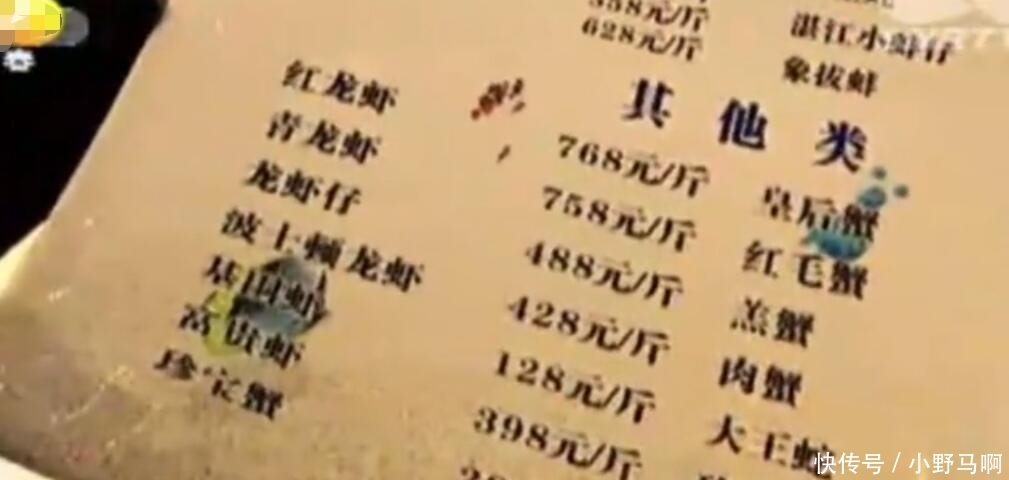 元/斤
湛江小蚌仔
628元/斤
象拔蚌
其他类
红龙虾 768元/斤 皇后蟹
青龙虾 758元/斤 红毛蟹
龙虾仔 488元/斤 羔蟹
波士顿龙虾 428元/斤 肉蟹
基围虾 128元/斤 大王蛇
富贵虾 398元/斤
珍宝蟹
快传号／小野马啊